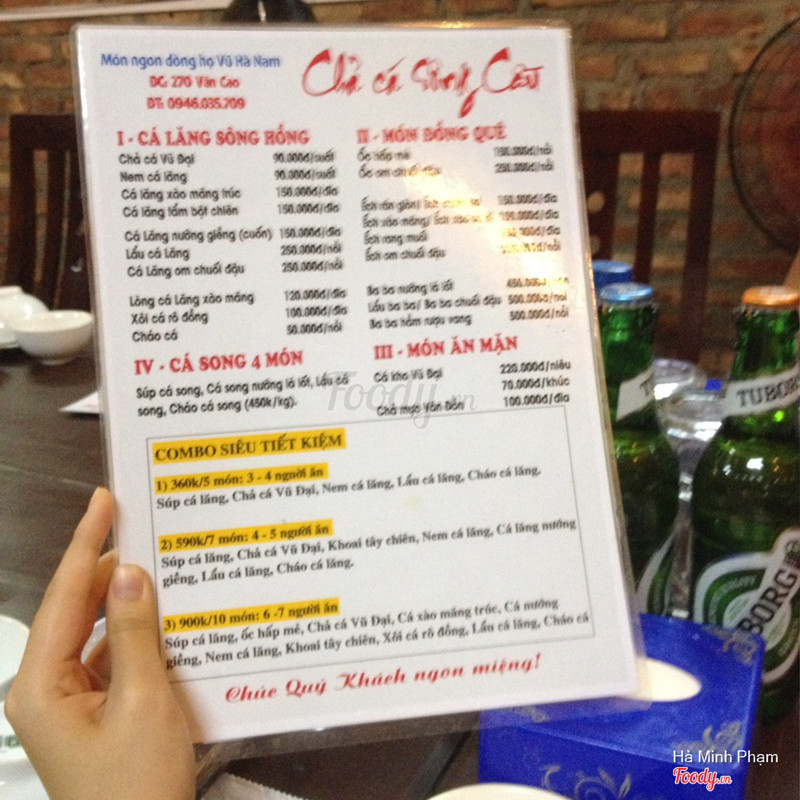 Món ngon dòng họ Vũ Hà Nam
ĐC: 270 Văn Cao
ĐT: 0946.035.709
Chả cá Sông Cầu
I - CÁ LĂNG SÔNG HỒNG
Chả cá Vũ Đại 90.000đ/suất
Nem cá lăng 90.000đ/suất
Cá lăng xào măng trúc 150.000đ/đĩa
Cá lăng tẩm bột chiên 150.000đ/đĩa
Cá Lăng nướng giềng (cuốn) 150.000đ/đĩa
Lẩu cá Lăng 250.000đ/nồi
Cá Lăng om chuối đậu 250.000đ/nồi
Lòng cá Lăng xào măng 120.000đ/đĩa
Xôi cá rô đồng 100.000đ/đĩa
Cháo cá 50.000đ/nồi
II - MÓN ĐỒNG QUÊ
Ốc hấp mẻ 150.000đ/nồi
Ốc om chuối đậu 250.000đ/nồi
Ếch rán giòn/ Ếch 150.000đ/đĩa
Ếch xào măng/ Ếch xào 150.000đ/đĩa
Ếch rang muối
Ếch om chuối đậu
Ba ba nướng lá lốt
Lẩu ba ba/ Ba ba chuối đậu 500.000đ/nồi
Ba ba hầm rượu vang 500.000đ/nồi
III - MÓN ĂN MẶN
Cá kho Vũ Đại 220.000đ/niêu
70.000đ/khúc
Chả mực Vân Đồn 100.000đ/đĩa
IV - CÁ SONG 4 MÓN
Súp cá song, Cá song nướng lá lốt, Lẩu cá
song, Cháo cá song (450k/kg).
COMBO SIÊU TIẾT KIỆM
1) 360k/5 món: 3 - 4 người ăn
Súp cá lăng, Chả cá Vũ Đại, Nem cá lăng, Lẩu cá lăng, Cháo cá lăng.
2) 590k/7 món: 4 - 5 người ăn
Súp cá lăng, Chả cá Vũ Đại, Khoai tây chiên, Nem cá lăng, Cá lăng nướng
giềng, Lẩu cá lăng, Cháo cá lăng.
3) 900k/10 món: 6 -7 người ăn
Súp cá lăng, ốc hấp mẻ, Chả cá Vũ Đại, Cá xào măng trúc, Cá nướng
giềng, Nem cá lăng, Khoai tây chiên, Xôi cá rô đồng, Lẩu cá lăng, Cháo cá
Chúc Quý Khách ngon miệng!
Foody.vn
TUBORG
TUBORG
Hà Minh Phạm
Foody.vn